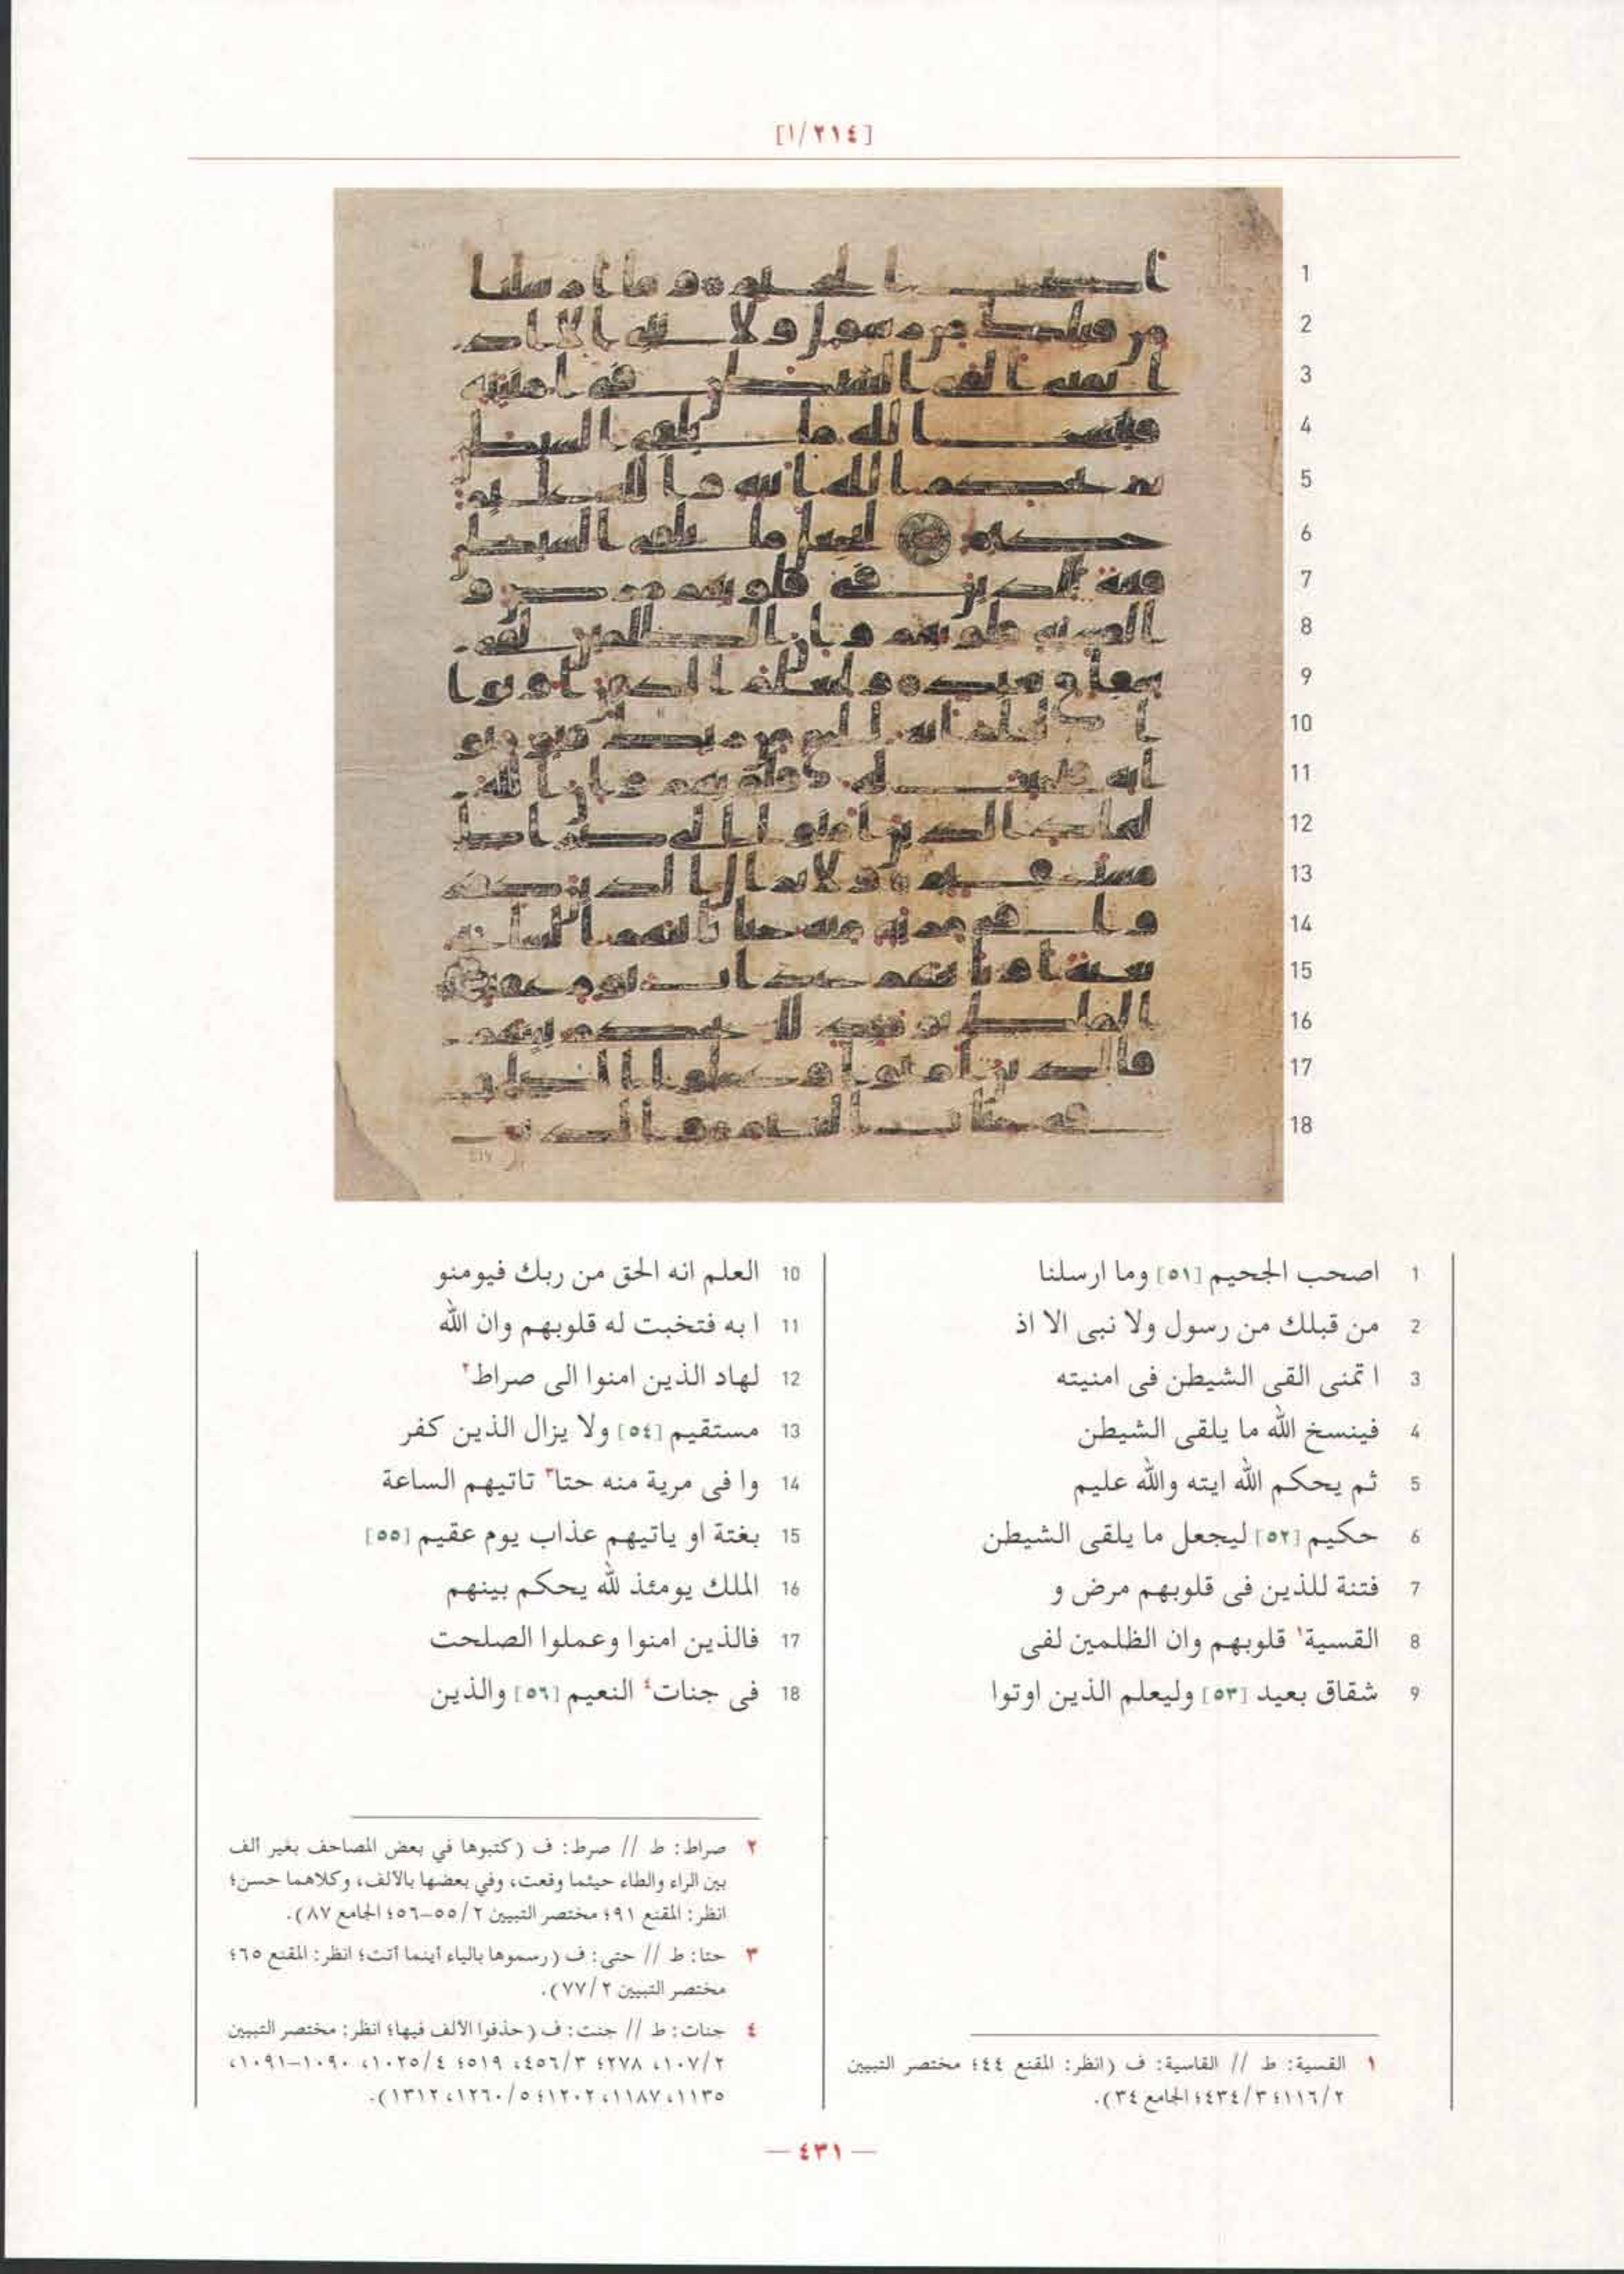 [١/٢١٤]
1 اصحب الجحيم [٥١] وما ارسلنا
2 من قبلك من رسول ولا نبى الا اذ
3 ا تمنى القى الشيطن فى امنيته
4 فينسخ الله ما يلقى الشيطن
5 ثم يحكم الله ايته والله عليم
6 حكيم [٥٢] ليجعل ما يلقى الشيطن
7 فتنة للذين فى قلوبهم مرض و
8 القسية١ قلوبهم وان الظلمين لفى
9 شقاق بعيد [٥٣] وليعلم الذين اوتوا
10 العلم انه الحق من ربك فيومنو
11 ا به فتخبت له قلوبهم وان الله
12 لهاد الذين امنوا الى صراط٢
13 مستقيم [٥٤] ولا يزال الذين كفر
14 وا فى مرية منه حتا٣ تاتيهم الساعة
15 بغتة او ياتيهم عذاب يوم عقيم [٥٥]
16 الملك يومئذ لله يحكم بينهم
17 فالذين امنوا وعملوا الصلحت
18 فى جنات٤ النعيم [٥٦] والذين
١ القسية: ط // القاسية: ف (انظر: المقنع ٤٤؛ مختصر التبيين
٢/١١٦؛ ٣/٤٣٤؛ الجامع ٣٤).
٢ صراط: ط // صرط: ف (كتبوها في بعض المصاحف بغير ألف
بين الراء والطاء حيثما وقعت، وفي بعضها بالألف، وكلاهما حسن؛
انظر: المقنع ٩١؛ مختصر التبيين ٢/٥٥–٥٦؛ الجامع ٨٧).
٣ حتا: ط // حتى: ف (رسموها بالياء أينما أتت؛ انظر: المقنع ٦٥؛
مختصر التبيين ٢/٧٧).
٤ جنات: ط // جنت: ف (حذفوا الألف فيها؛ انظر: مختصر التبيين
٢/١٠٧، ٢٧٨؛ ٣/٤٥٦، ٥١٩؛ ٤/١٠٢٥، ١٠٩٠–١٠٩١،
١١٣٥، ١١٨٧، ١٢٠٢؛ ٥/١٢٦٠، ١٣١٢).
— ٤٣١ —